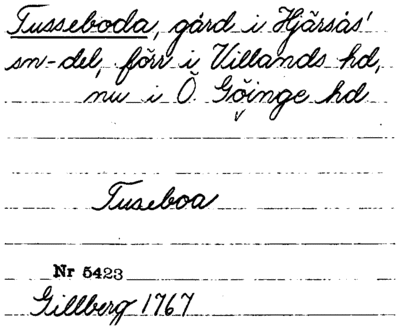 Tusseboda, gård i Hjärsås'
sn-del, förr i Villands hd,
nu i Ö Göinge hd
Tuseboa
Nr 5423
Gillberg 1767